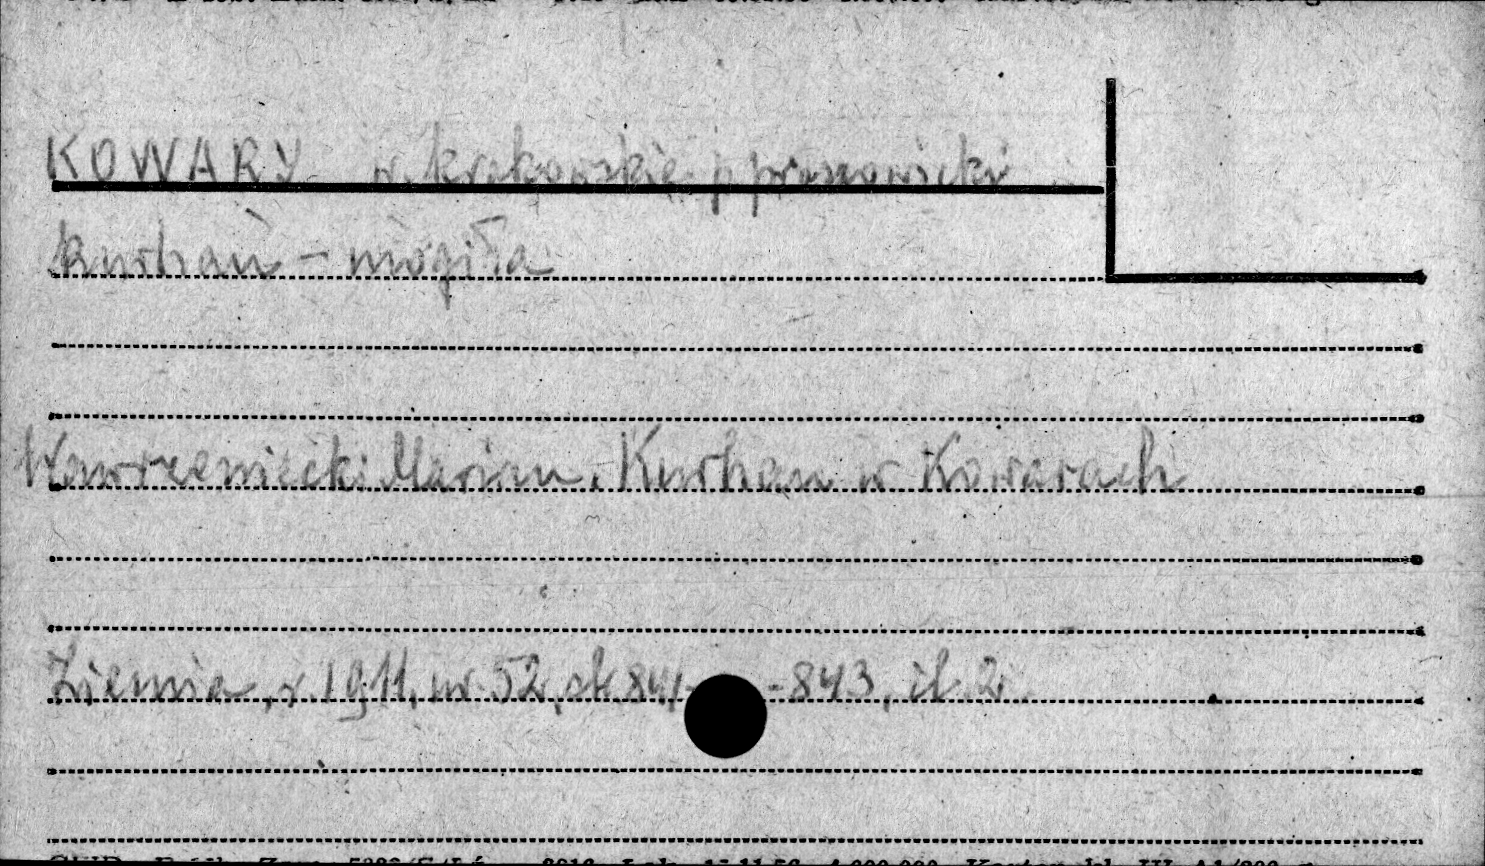 KOWARY w. krakowskie p. proszowicki
kurhan - mogiła
Wawrzeniecki Marian. Kurhan w Kowarach
Ziemia, r. 1911, nr 52, st 841- -843, il. 2.